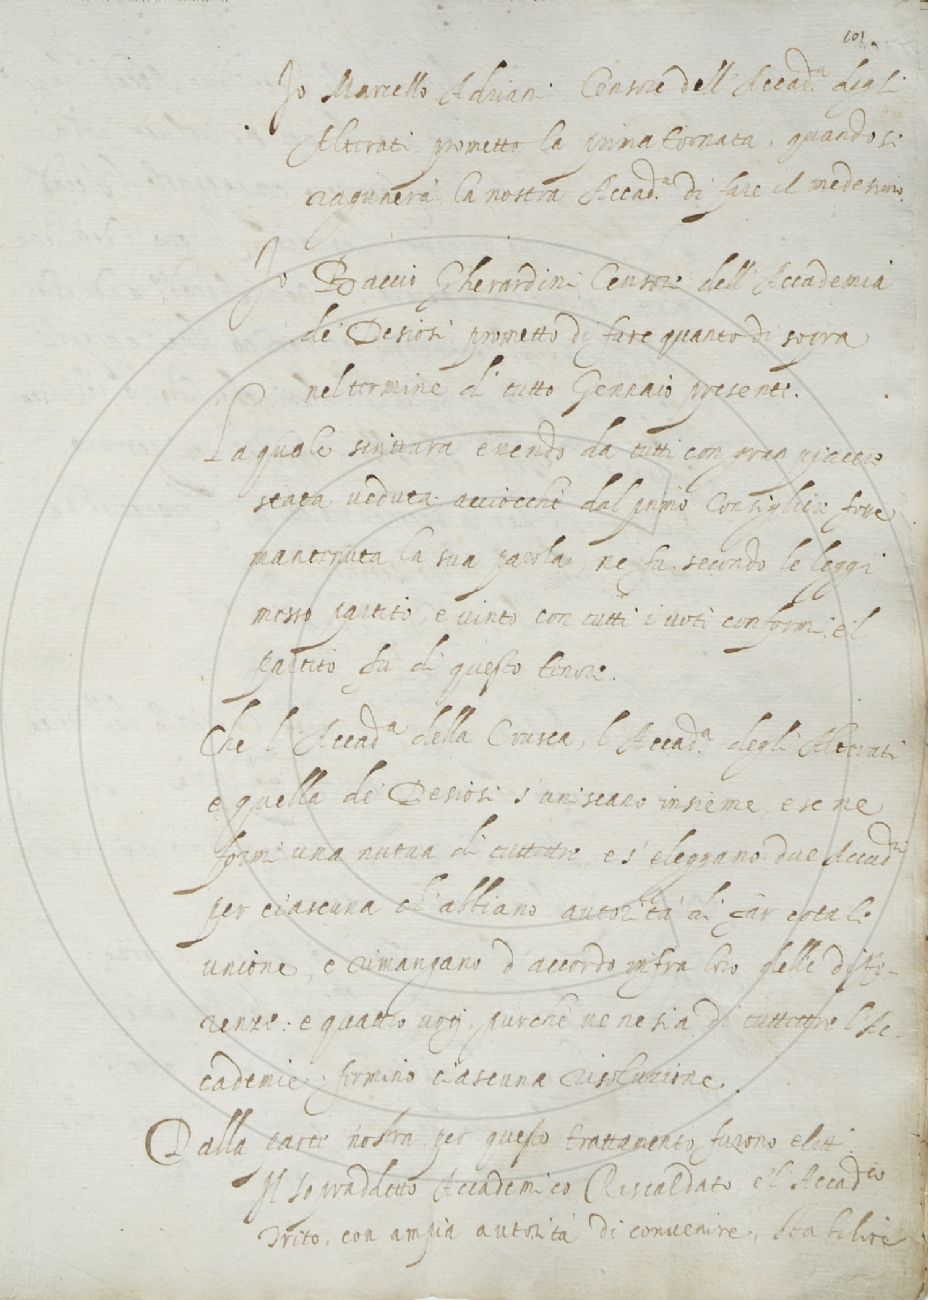 101.
Io Marcello Adriani Censore dell'Accad.a degli
Alterati prometto la prima tornata, quando si
ragunerà la nostra Accad.a di fare il medesimo.
Io Baccio Gherardini Censore dell'Accademia
de' Desiosi prometto di fare quanto di sopra
nel termine di tutto Gennaio presente.
La quale scrittura essendo da tutti con gran piacere
stata veduta: acciocchè dal primo Consigliere fosse
mantenuta la sua parola, ne fu secondo le leggi
messo partito, e vinto con tutti i voti conformi: e'l
partito fu di questo tenore.
Che l'Accad.a della Crusca, l'Accad.a degli Alterati
e quella de' Desiosi s'uniscano insieme, e se ne
formi una nuova di tuttettre, e s'eleggano due Accad.ci
per ciascuna ch'abbiano autorità di far cotale
unione, e rimangano d'accordo infra loro delle diffe-
renze: e quattro voti, purchè ve ne sia di tuttettre l'Ac-
cademie, fermino ciascuna risoluzione.
Dalla parte nostra per questo trattamento furono eletti
Il sopraddetto Accademico Riscaldato e l'Accad.co
Trito, con ampia autorità di convenire, stabilire